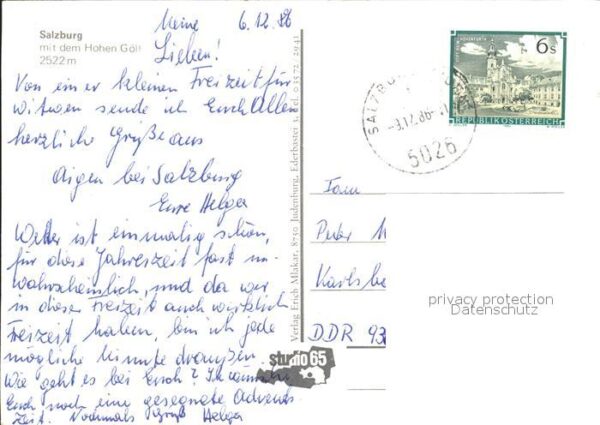 Salzburg
mit dem Hohen Göll
2522 m
6.12.86
Meine
Lieben!
Von einer kleinen Freizeit für
Witwen sende ich Euch Allen
herzliche Grüße aus
Aigen bei Salzburg
Eure Helga
Wetter ist einmalig schön,
für diese Jahreszeit fast un-
wahrscheinlich, und da wir
in dieser Freizeit auch wirklich
Freizeit haben, bin ich jede
mögliche Minute draußen.
Wie geht es bei Euch? Ich wünsche
Euch noch eine gesegnete Advents
Zeit. Nochmals Gruß Helga
Verlag Erich Mlakar, 8750 Judenburg, Ederbastei 3, Tel. 0 35 72 2941
studio 65
6 S
REPUBLIK ÖSTERREICH
SALZBURG
-3.12.86
5026
Fam
Peter
Karlsbe
DDR 93
privacy protection
Datenschutz